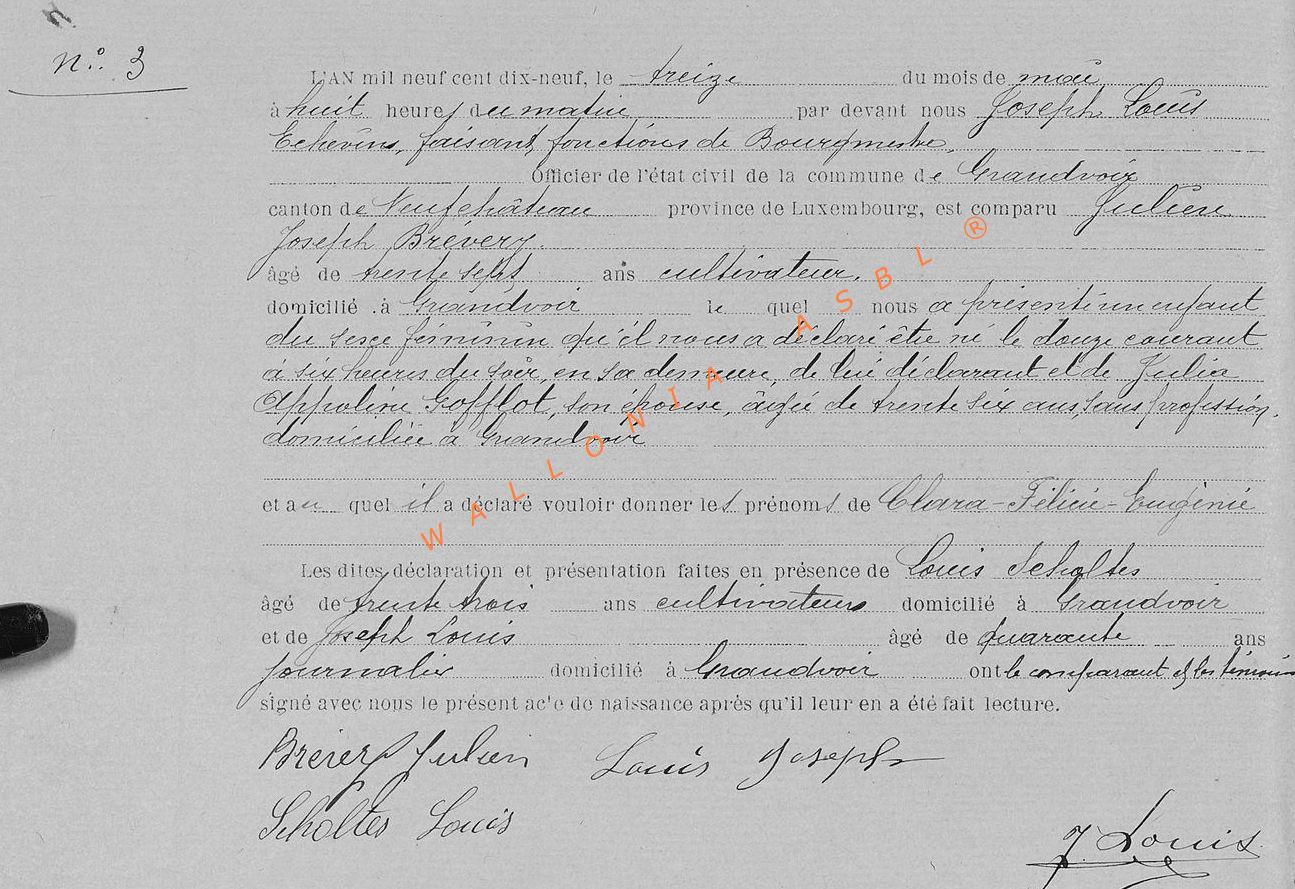 n° 3
L'AN mil neuf cent dix-neuf, le treize du mois de
à huit heures du matin par devant nous Joseph Louis
Echevins, faisant fonctions de Bourgmestre,
Officier de l'état civil de la commune de Grandvoir
canton de Neufchâteau province de Luxembourg, est comparu Julien
Joseph Brévery.
âgé de trente sept ans cultivateur,
domicilié à Grandvoir le quel nous a présenté un enfant
du sexe féminin qu'il nous a déclaré être né le douze courant
à six heures du soir, en sa demeure, de lui déclarant et de Julia
Appoline Gofflot, son épouse, âgée de trente six ans, sans profession,
domiciliée à Grandvoir
et au quel il a déclaré vouloir donner les prénoms de Clara-Félicie-Eugénie
Les dites déclaration et présentation faites en présence de Louis Scholtes
âgé de trente trois ans cultivateurs domicilié à Grandvoir
et de Joseph Louis âgé de quarante ans
journalier domicilié à Grandvoir ont le comparant et les témoins
signé avec nous le présent acte de naissance après qu'il leur en a été fait lecture.
Julien Louis Joseph
Scholtes Louis
J. Louis
WALLONIA ASBL ®